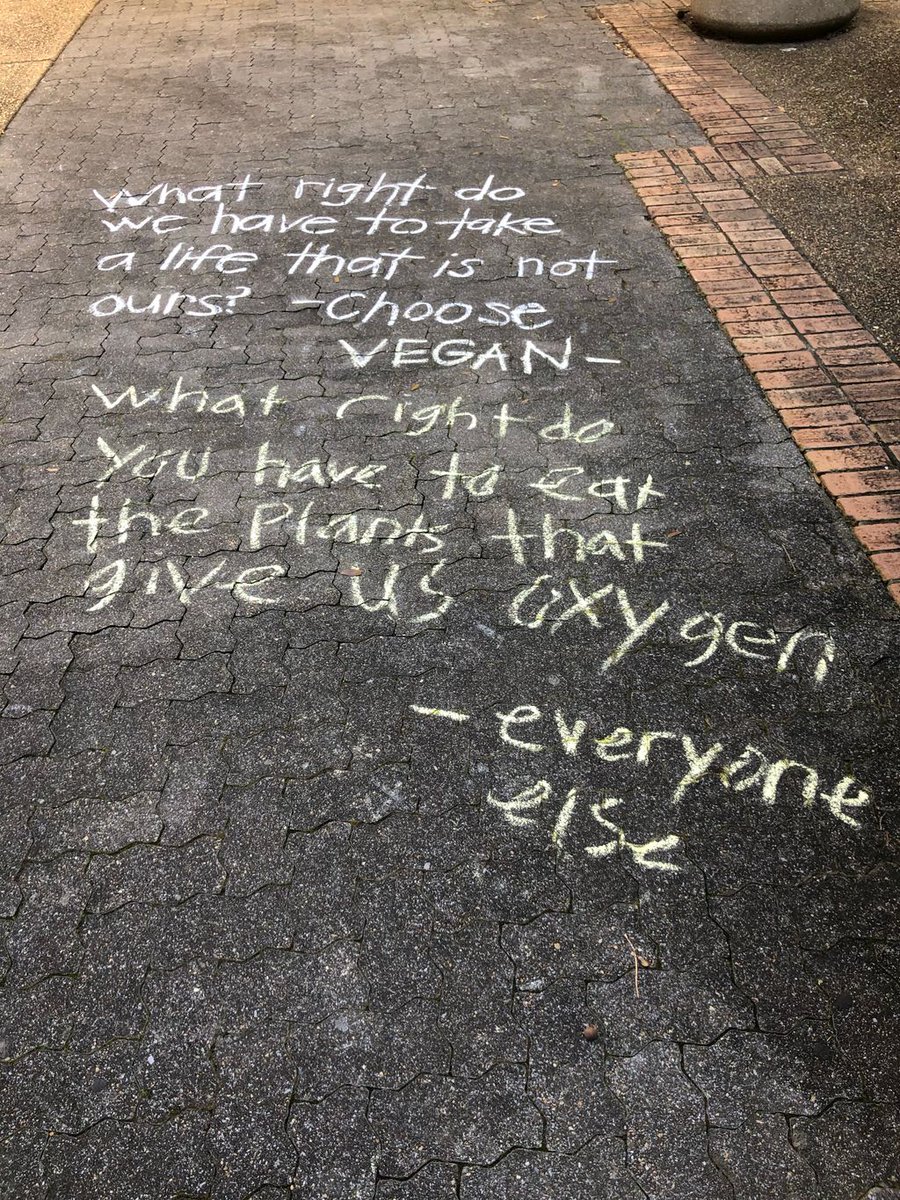 What right do
we have to take
a life that is not
ours? -Choose
VEGAN-
What right do
You have to eat
the Plants that
give us oxygen
- everyone
else